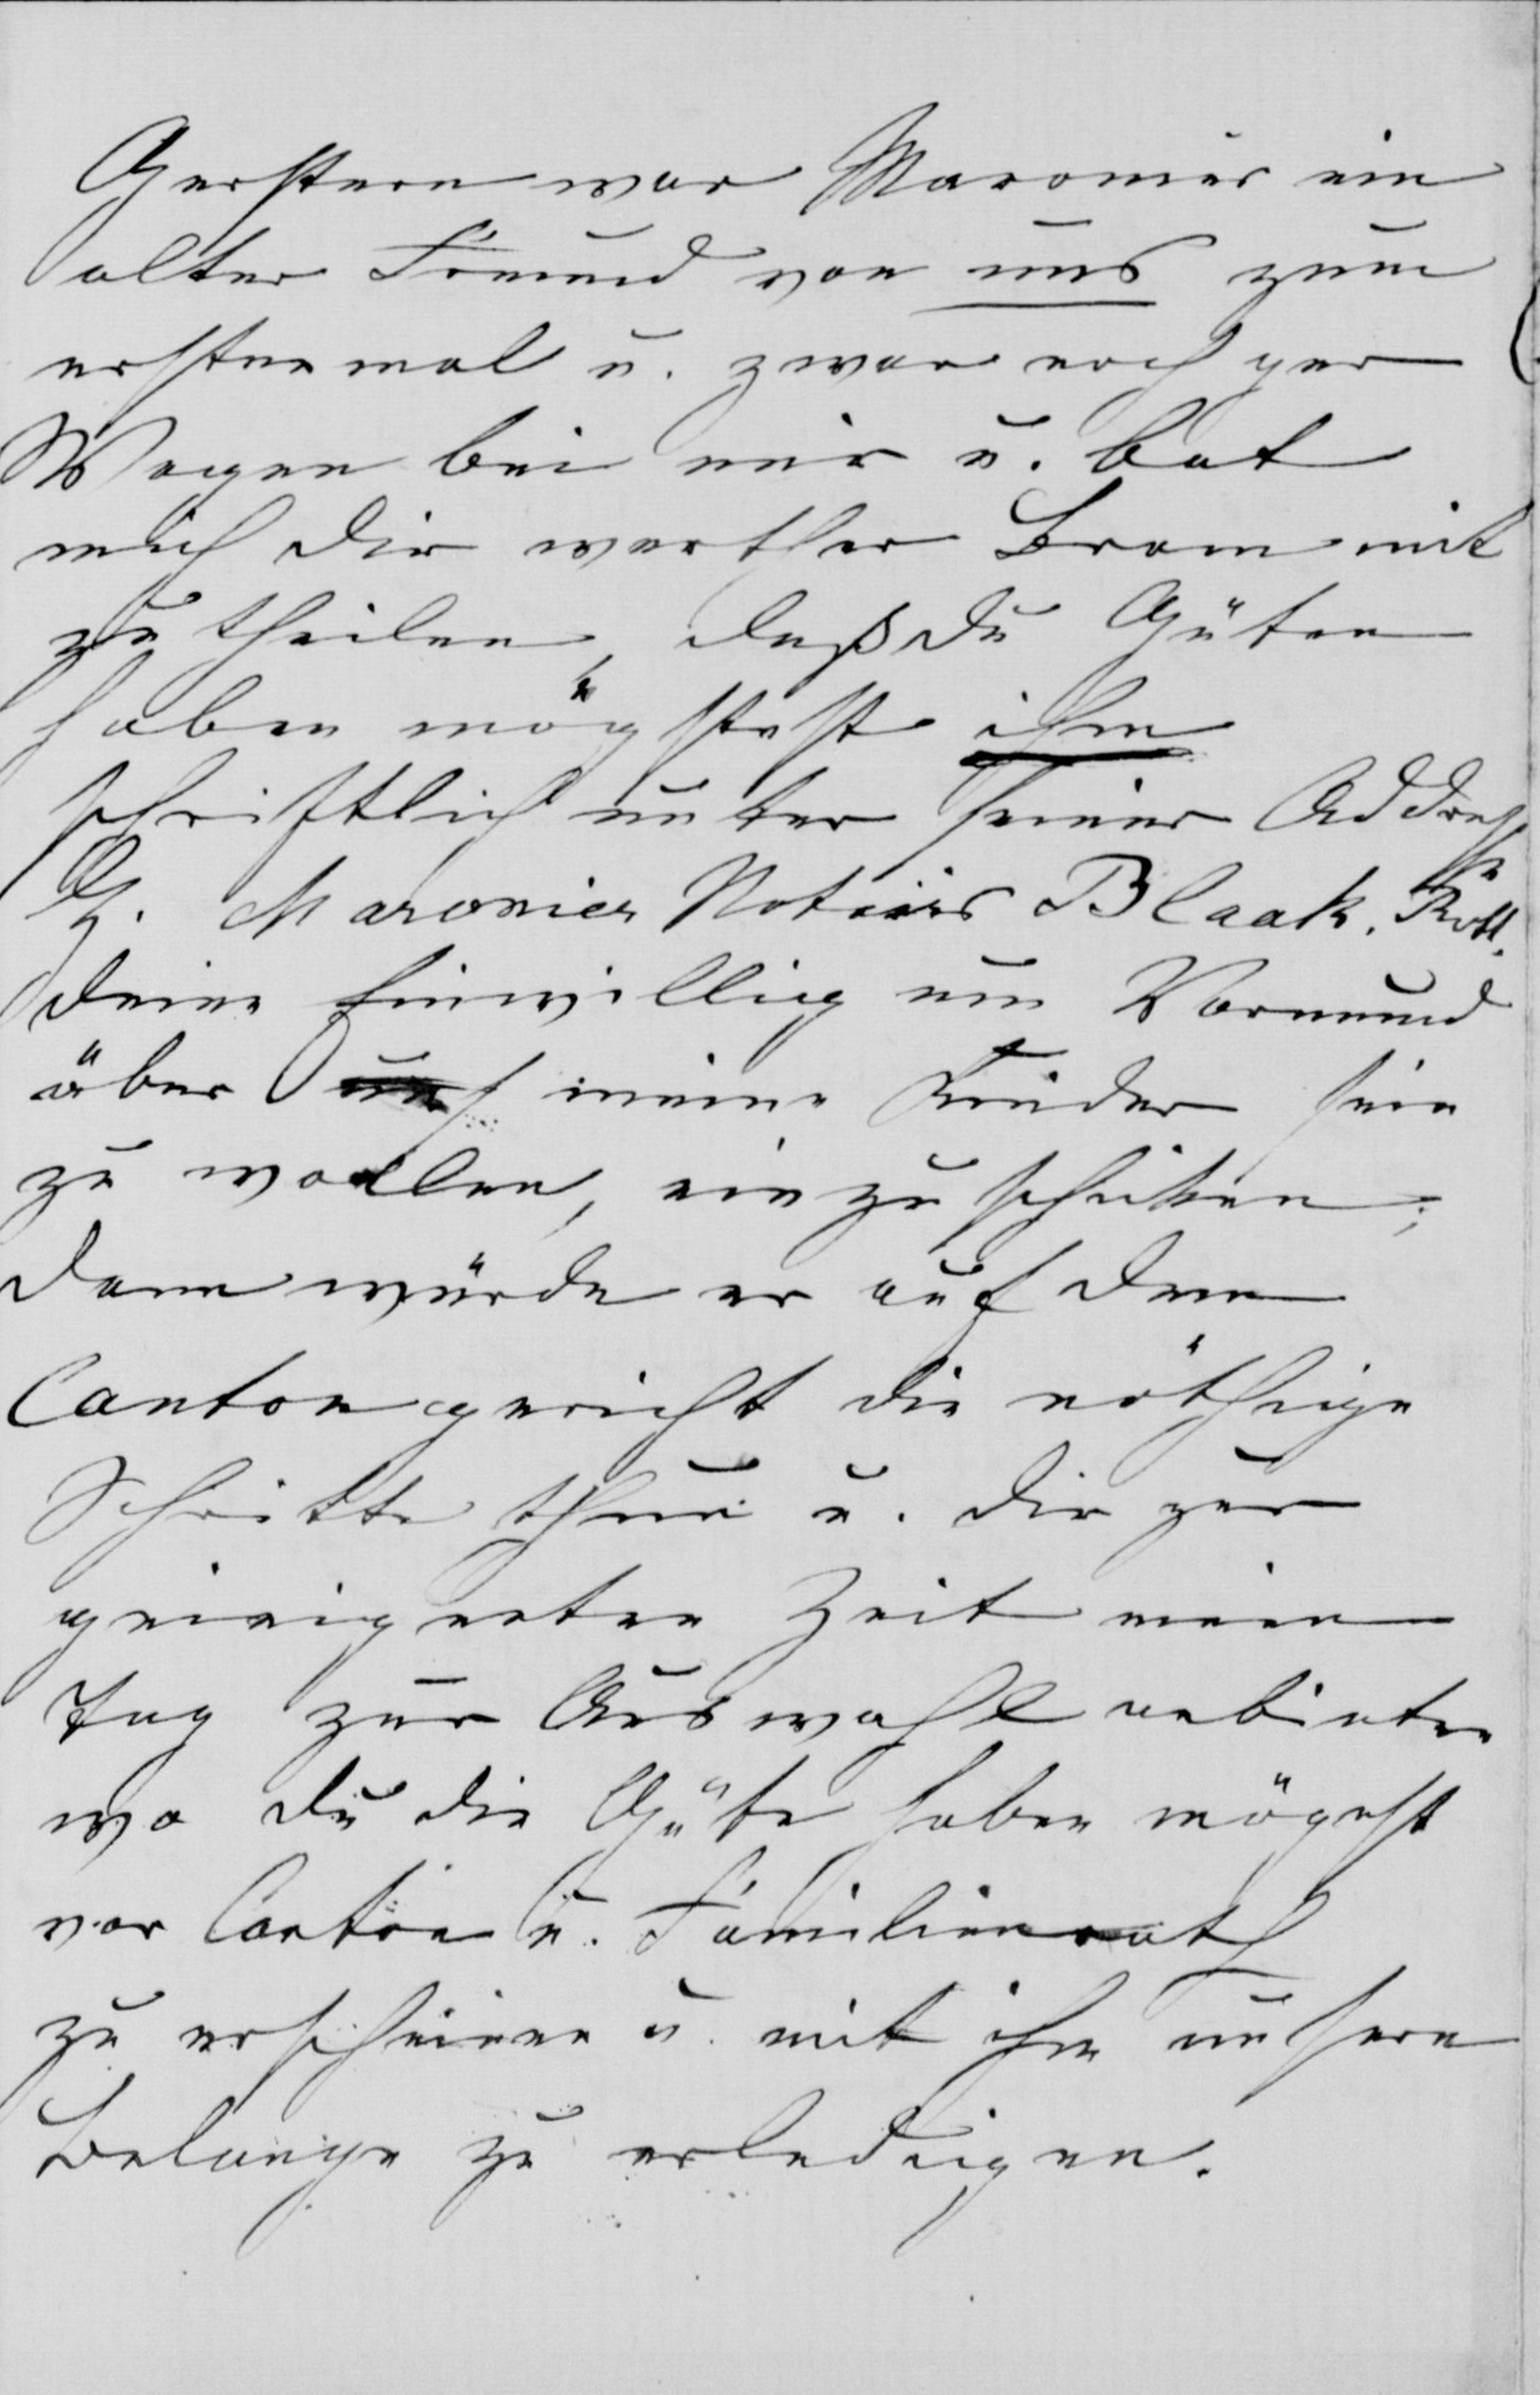 Gersteren war Maronier ein
alter Freund von uns zum
erstenmal u. zwar noch per
Wagen bei mir u. bat
mich dir werther Bram mit
zu theilen, daß du Güten
haben mögstest ihm
schriftlich unter seiner Addresse
G. Maronier Notairs Blaak. Rott.
deine Einwillig um Vormund
über meine Kinder sein
zu wollen, einzuschicken;
dann würde er auf dem
Cantongericht die nöthige
Schritte thun u. dir zur
geeigneten Zeit einen
Tag zur Auswahl anbieten
wo du die Güte haben mögest
vor Canton u. Familienrath
zu erscheinen u. mit ihm unsere
Belange zu erledigen.